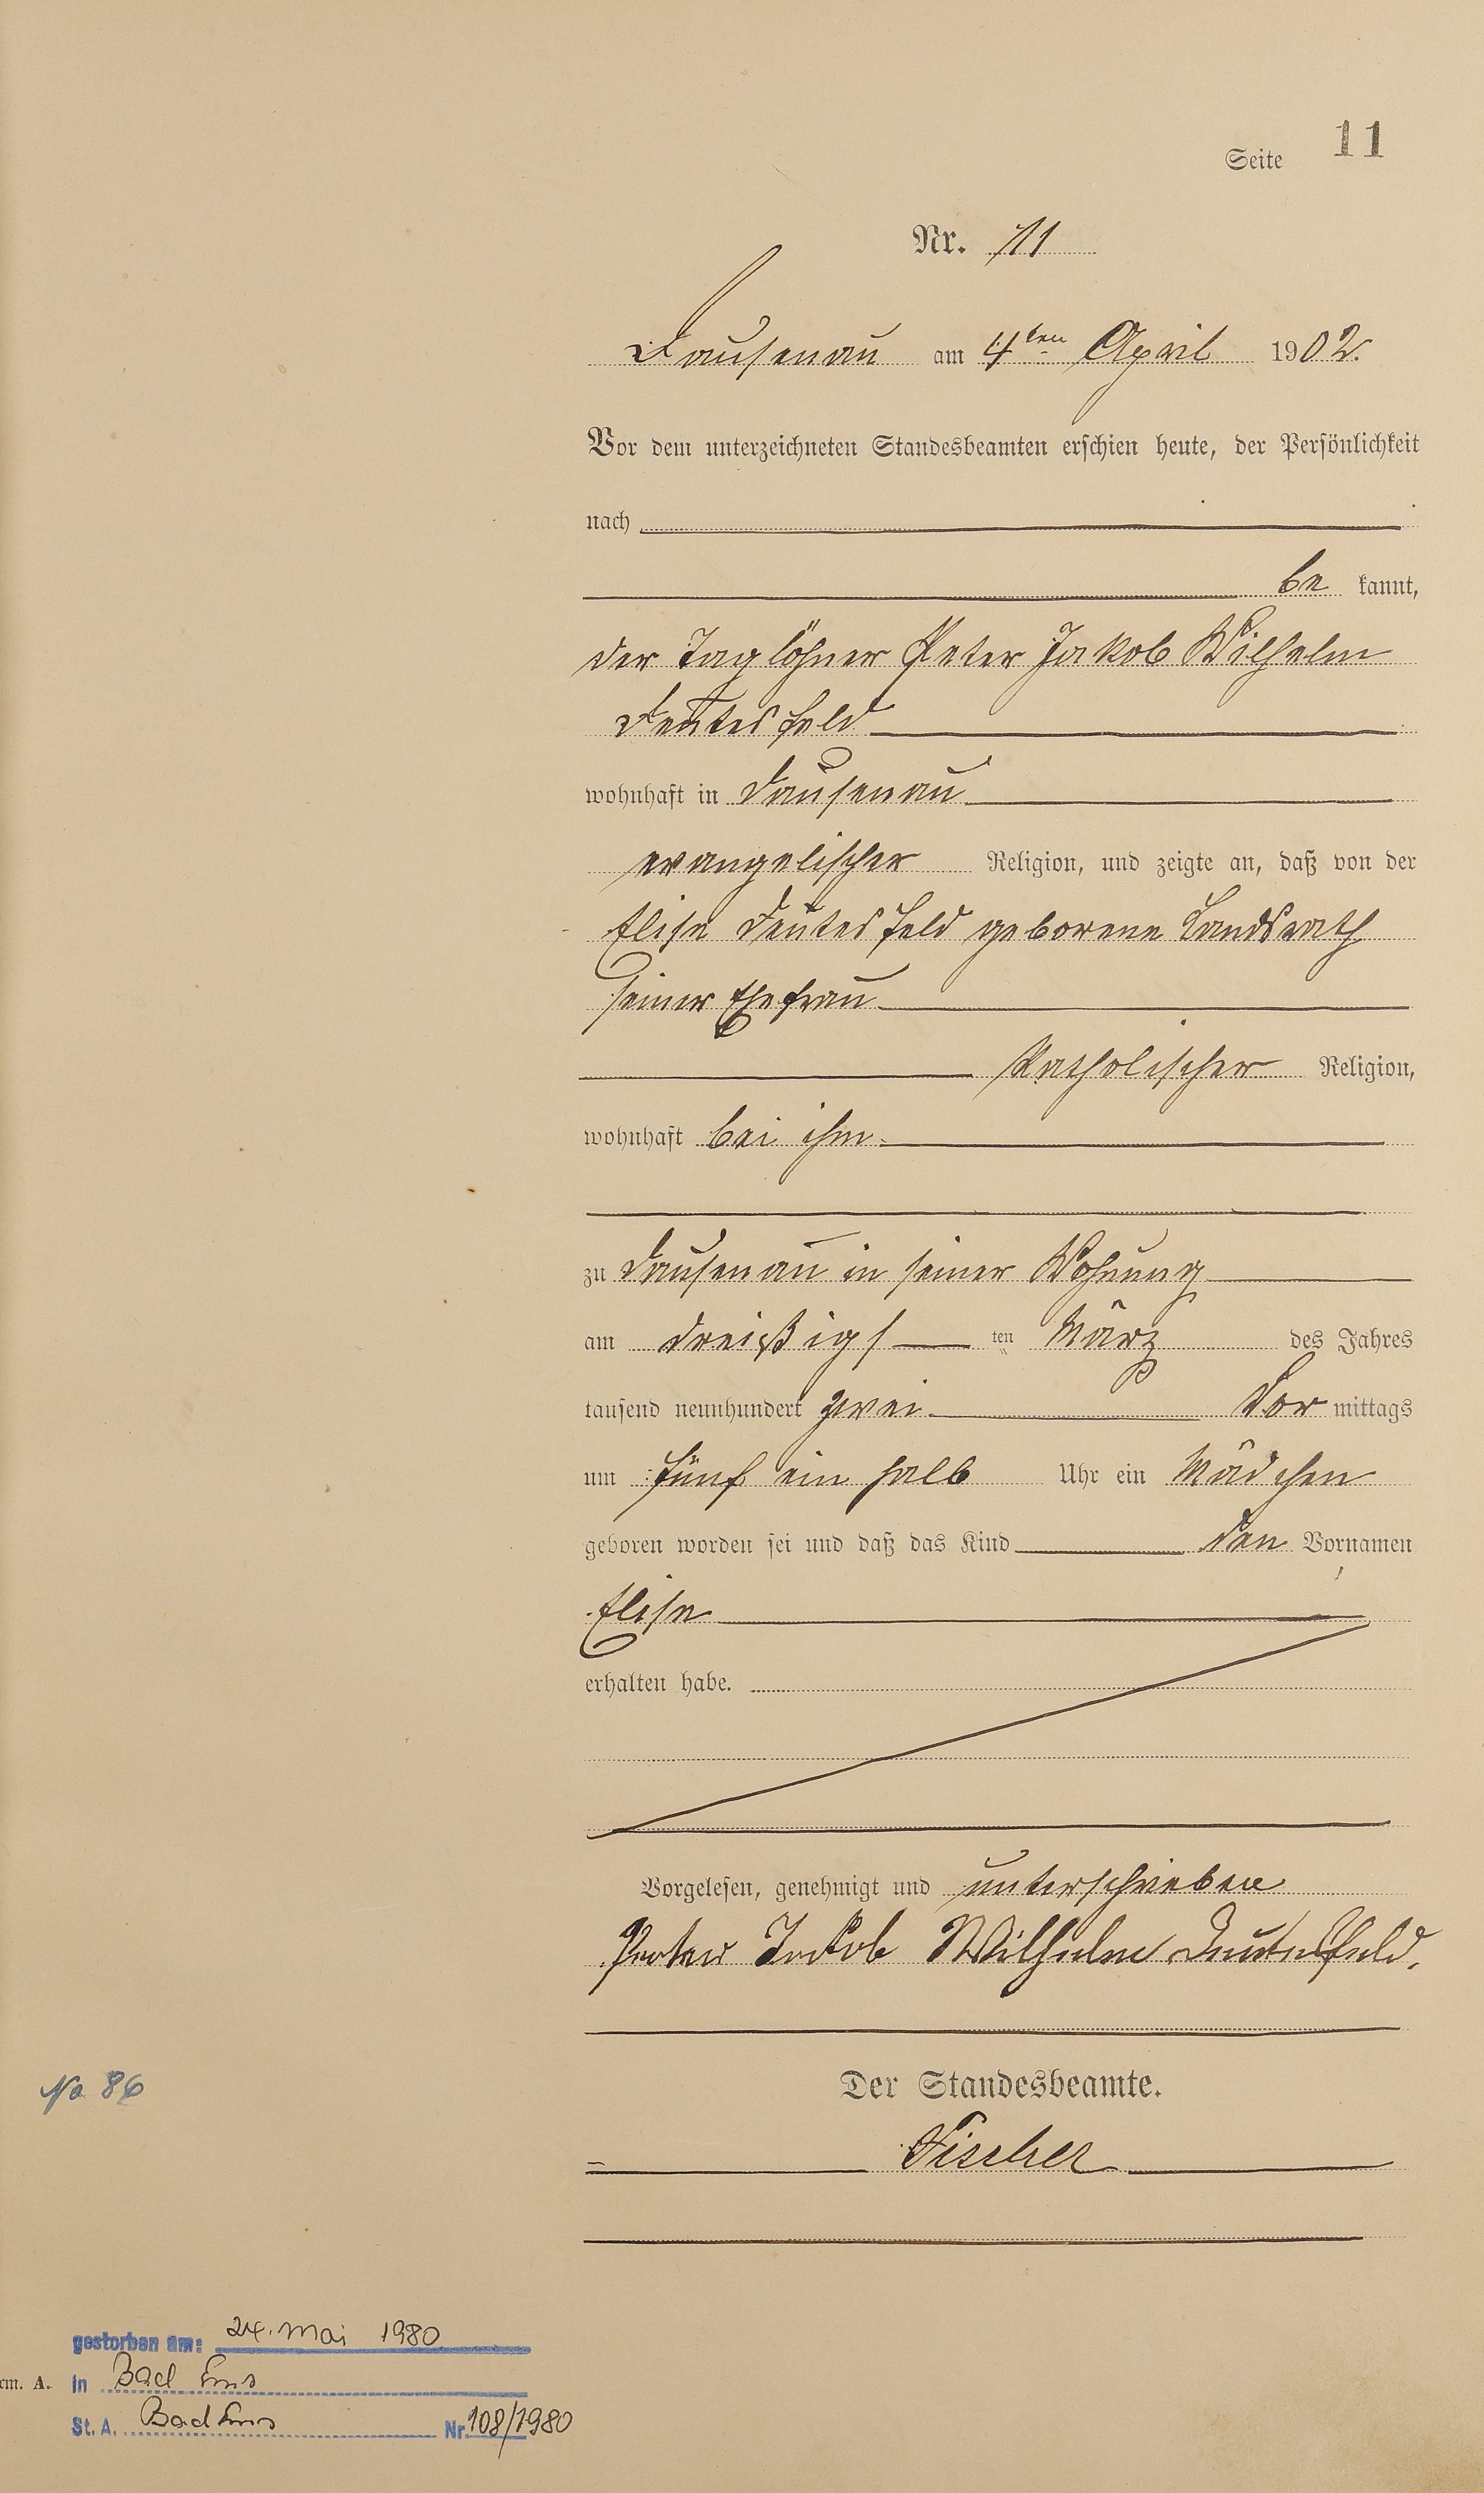 Seite 11
Nr. 11
Dausenau am 4ten April 1902.
Vor dem unterzeichneten Standesbeamten erschien heute, der Persönlichkeit
nach
be kannt,
der Taglöhner Peter Jakob Wilhelm
Deutesfeld
wohnhaft in Dausenau
evangelischer Religion, und zeigte an, daß von der
Elise Deutesfeld geborene Landsrath
seiner Ehefrau
Katholischer Religion,
wohnhaft bei ihm
zu Dausenau in seiner Wohnung
am dreißigs ten März des Jahres
tausend neunhundert zwei Vor mittags
um fünf ein halb Uhr ein Mädchen
geboren worden sei und daß das Kind den Vornamen
Elise
erhalten habe.
Vorgelesen, genehmigt und unterschrieben
Peter Jakob Wilhelm Deutesfeld.
No 86
Der Standesbeamte.
Fischer
gestorben am: 24. Mai 1980
rm. A. in Bad Ems
St. A. Bad Ems Nr. 108/1980